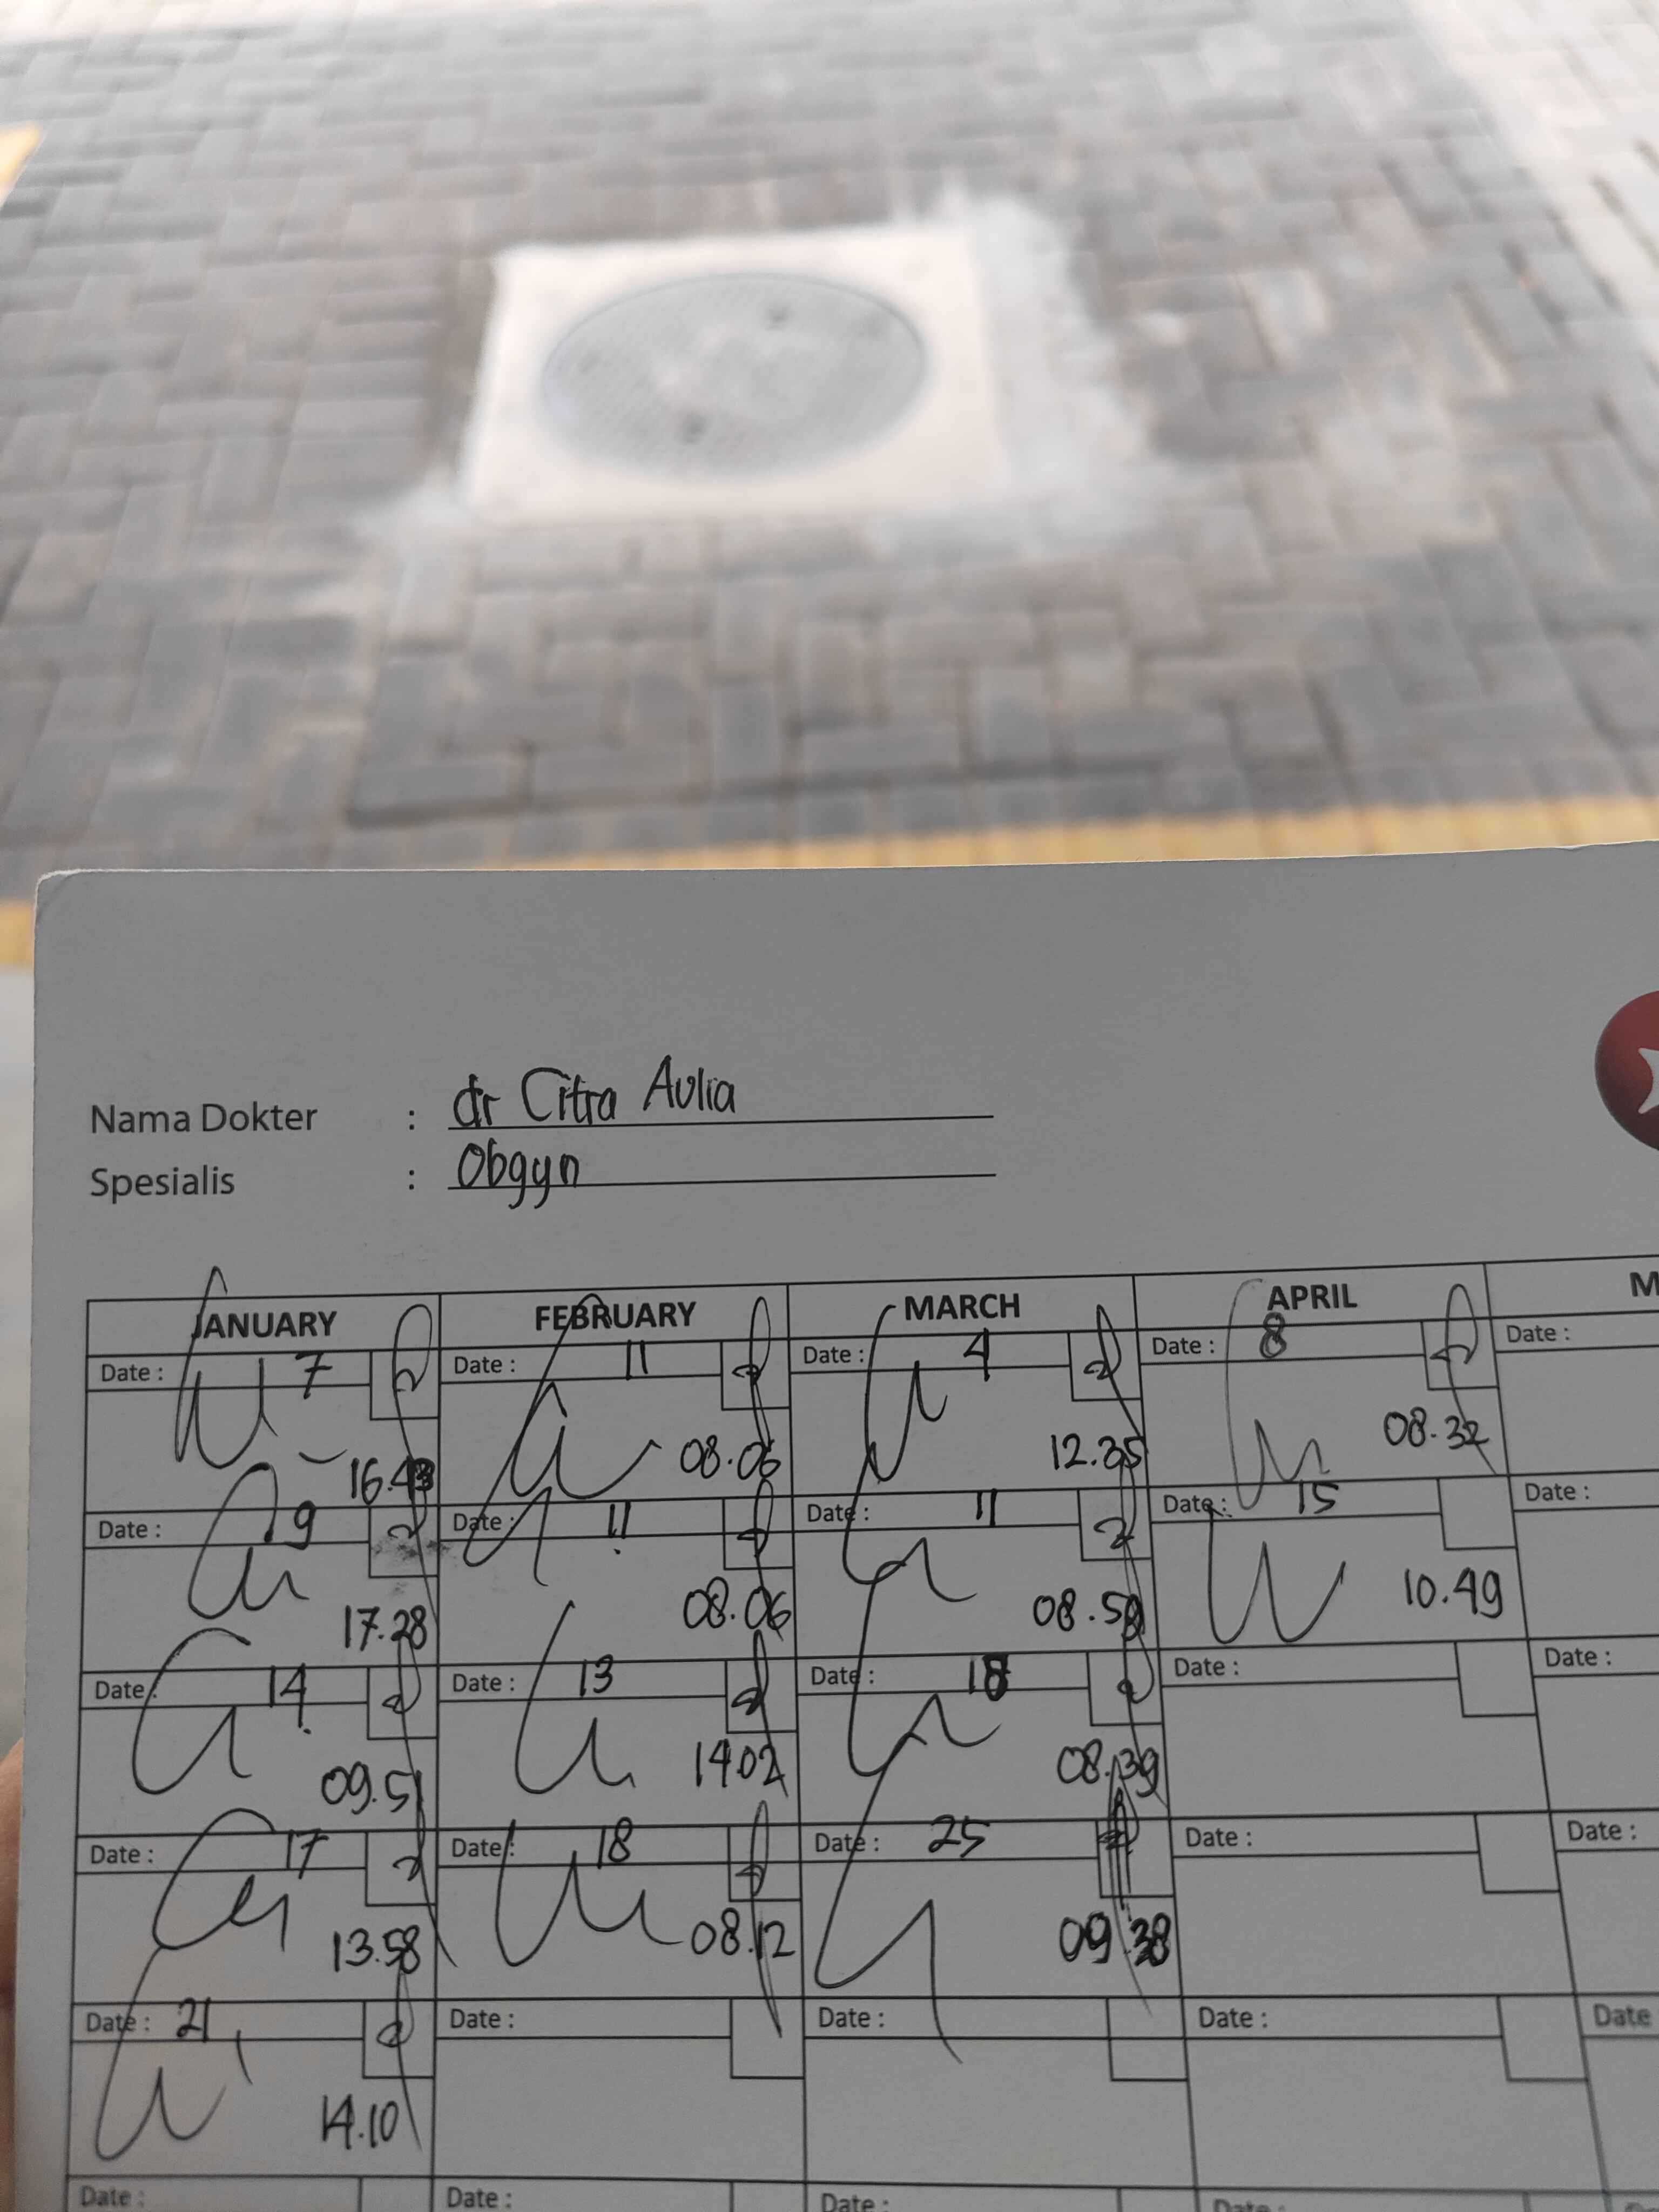 Nama Dokter : dr Citra Aulia
Spesialis : Obgyn
JANUARY FEBRUARY MARCH APRIL M
Date : 7 Date : 11 Date : 4 Date : 8 Date :
16.43 08.06 12.35 08.32
Date : 9 Date : 11 Date : 11 Date : 15 Date :
17.28 08.06 08.59 10.49
Date : 14 Date : 13 Date : 18 Date : Date :
09.51 14.02 08.39
Date : 17 Date : 18 Date : 25 Date : Date :
13.58 08.12 09.38
Date : 21 Date : Date : Date : Date
14.10
Date : Date : Date : Date :